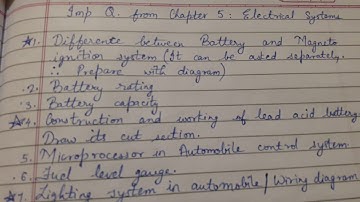 Imp Q. from Chapter 5: Electrical Systems
*1. Difference between Battery and Magneto
ignition system (It can be asked separately.
∴ Prepare with diagram)
.2. Battery rating
.3. Battery capacity
*4. Construction and working of lead acid battery.
Draw its cut section.
5. Microprocessor in Automobile control system
.6. Fuel level gauge.
*7. Lighting system in automobile / Wiring diagram